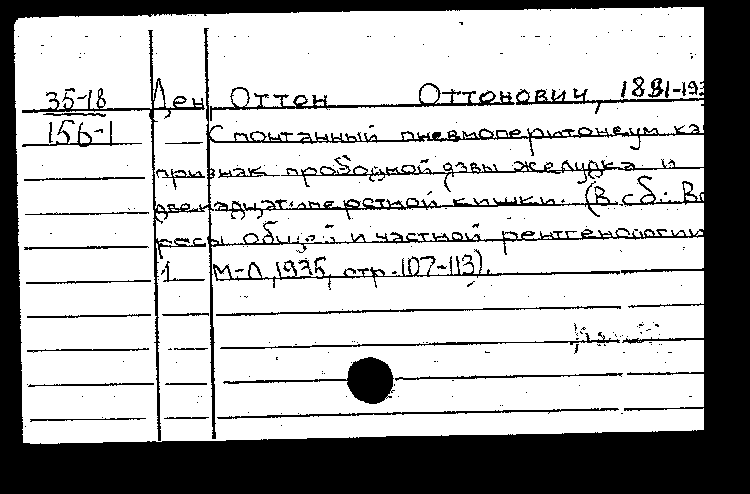 35-18 Ден Оттон Оттонович, 1881-193
156-1 Спонтанный пневмоперитонеум ка
признак прободной язвы желудка и
двенадцатиперстной кишки. (В сб.: Во
росы общей и частной рентгенологии
1 М-Л, 1935, стр. 107-113).